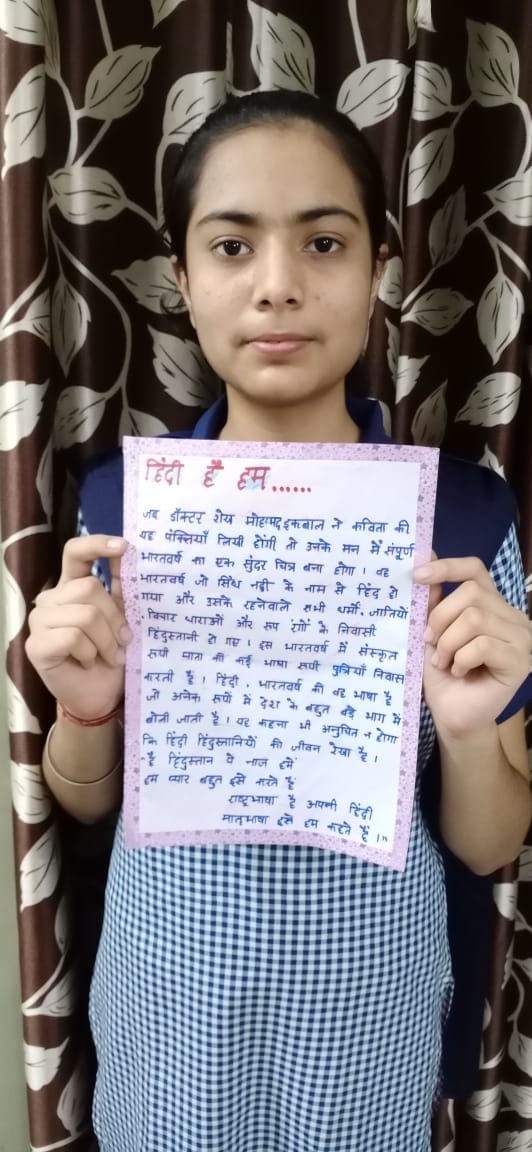 हिंदी है हम......
जब डॉक्टर शेख मोहम्मद इकबाल ने कविता की
यह पंक्तियाँ लिखी होंगी तो उनके मन में संपूर्ण
भारतवर्ष का एक सुंदर चित्र बना होगा। वह
भारतवर्ष जो सिंध नदी के नाम से हिंद हो
गया और उसके रहनेवाले सभी धर्मों, जातियों
विचार धाराओं और रूप रंगों के निवासी
हिंदुस्तानी हो गए। इस भारतवर्ष में संस्कृत
रूपी माता की कई भाषा रूपी पुत्रियाँ निवास
करती है। हिंदी, भारतवर्ष की वह भाषा है
जो अनेक रूपों में देश के बहुत बड़े भाग में
बोली जाती है। यह कहना भी अनुचित न होगा
कि हिंदी हिंदुस्तानियों की जीवन रेखा है।
"है हिंदुस्तान पे नाज हमें
हम प्यार बहुत इसे करते हैं
राष्ट्रभाषा है अपनी हिंदी
मातृभाषा इसे हम कहते हैं।"